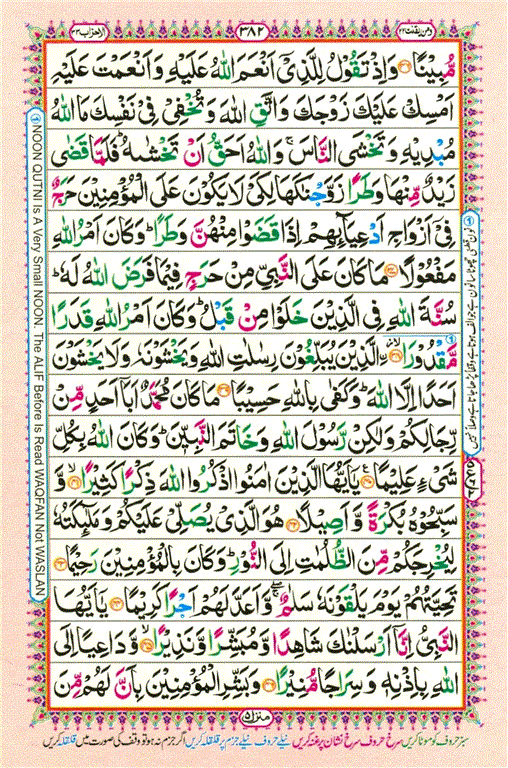 الاحزاب ٣٣
٣٨٢
ومن يقنت ٢٢
مُّبِيْنًا ۞٣٦ وَاِذْ تَقُوْلُ لِلَّذِيْٓ اَنْعَمَ اللّٰهُ عَلَيْهِ وَاَنْعَمْتَ عَلَيْهِ
اَمْسِكْ عَلَيْكَ زَوْجَكَ وَاتَّقِ اللّٰهَ وَتُخْفِيْ فِيْ نَفْسِكَ مَا اللّٰهُ
مُبْدِيْهِ وَتَخْشَى النَّاسَ ۚ وَاللّٰهُ اَحَقُّ اَنْ تَخْشٰىهُ ؕ فَلَمَّا قَضٰى
زَيْدٌ مِّنْهَا وَطَرًا زَوَّجْنٰكَهَا لِكَيْ لَا يَكُوْنَ عَلَى الْمُؤْمِنِيْنَ حَرَجٌ
فِيْٓ اَزْوَاجِ اَدْعِيَآئِهِمْ اِذَا قَضَوْا مِنْهُنَّ وَطَرًا ؕ وَكَانَ اَمْرُ اللّٰهِ
مَفْعُوْلًا ۞٣٧ مَا كَانَ عَلَى النَّبِيِّ مِنْ حَرَجٍ فِيْمَا فَرَضَ اللّٰهُ لَهٗ ؕ
سُنَّةَ اللّٰهِ فِي الَّذِيْنَ خَلَوْا مِنْ قَبْلُ ؕ وَكَانَ اَمْرُ اللّٰهِ قَدَرًا
مَّقْدُوْرَا ۞٣٨ۙ ۨالَّذِيْنَ يُبَلِّغُوْنَ رِسٰلٰتِ اللّٰهِ وَيَخْشَوْنَهٗ وَلَا يَخْشَوْنَ
اَحَدًا اِلَّا اللّٰهَ ؕ وَكَفٰى بِاللّٰهِ حَسِيْبًا ۞٣٩ مَا كَانَ مُحَمَّدٌ اَبَآ اَحَدٍ مِّنْ
رِّجَالِكُمْ وَلٰكِنْ رَّسُوْلَ اللّٰهِ وَخَاتَمَ النَّبِيّٖنَ ؕ وَكَانَ اللّٰهُ بِكُلِّ
شَيْءٍ عَلِيْمًا ۞٤٠ يٰٓاَيُّهَا الَّذِيْنَ اٰمَنُوا اذْكُرُوا اللّٰهَ ذِكْرًا كَثِيْرًا ۞٤١ۙ وَّ
سَبِّحُوْهُ بُكْرَةً وَّاَصِيْلًا ۞٤٢ هُوَ الَّذِيْ يُصَلِّيْ عَلَيْكُمْ وَمَلٰٓئِكَتُهٗ
لِيُخْرِجَكُمْ مِّنَ الظُّلُمٰتِ اِلَى النُّوْرِ ؕ وَكَانَ بِالْمُؤْمِنِيْنَ رَحِيْمًا ۞٤٣
تَحِيَّتُهُمْ يَوْمَ يَلْقَوْنَهٗ سَلٰمٌ ۚۖ وَاَعَدَّ لَهُمْ اَجْرًا كَرِيْمًا ۞٤٤ يٰٓاَيُّهَا
النَّبِيُّ اِنَّآ اَرْسَلْنٰكَ شَاهِدًا وَّمُبَشِّرًا وَّنَذِيْرًا ۞٤٥ۙ وَّدَاعِيًا اِلَى
اللّٰهِ بِاِذْنِهٖ وَسِرَاجًا مُّنِيْرًا ۞٤٦ وَبَشِّرِ الْمُؤْمِنِيْنَ بِاَنَّ لَهُمْ مِّنَ
منزل ٥
سبز حروف کو موٹا کریں سرخ حروف سرخ نشان پر غنہ کریں نیلے حروف نیلے جزم پر قلقلہ کریں اگر جزم نہ ہو تو وقف کی صورت میں قلقلہ کریں
NOON QUTNI Is A Very Small NOON. The ALIF Before Is Read WAQFAN Not WASLAN